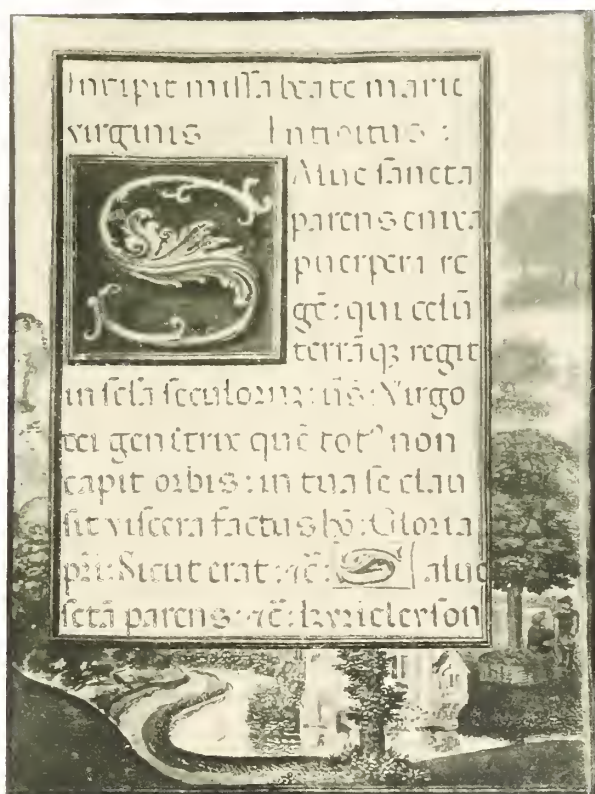 Incipit missa beate marie
virginis Introitus :
Salue sancta
parens enixa
puerpera re
gē : qui celū
terrā qȝ regit
in scl̄a seculoꝝ : v̄s : Virgo
dei genitrix quē totꝰ non
capit orbis : in tua se clau
sit viscera factus hō : Gloria
pr̄i : Sicut erat : ⁊c̄ : Salue
sctā parens : ⁊c̄ : kyrieleyson